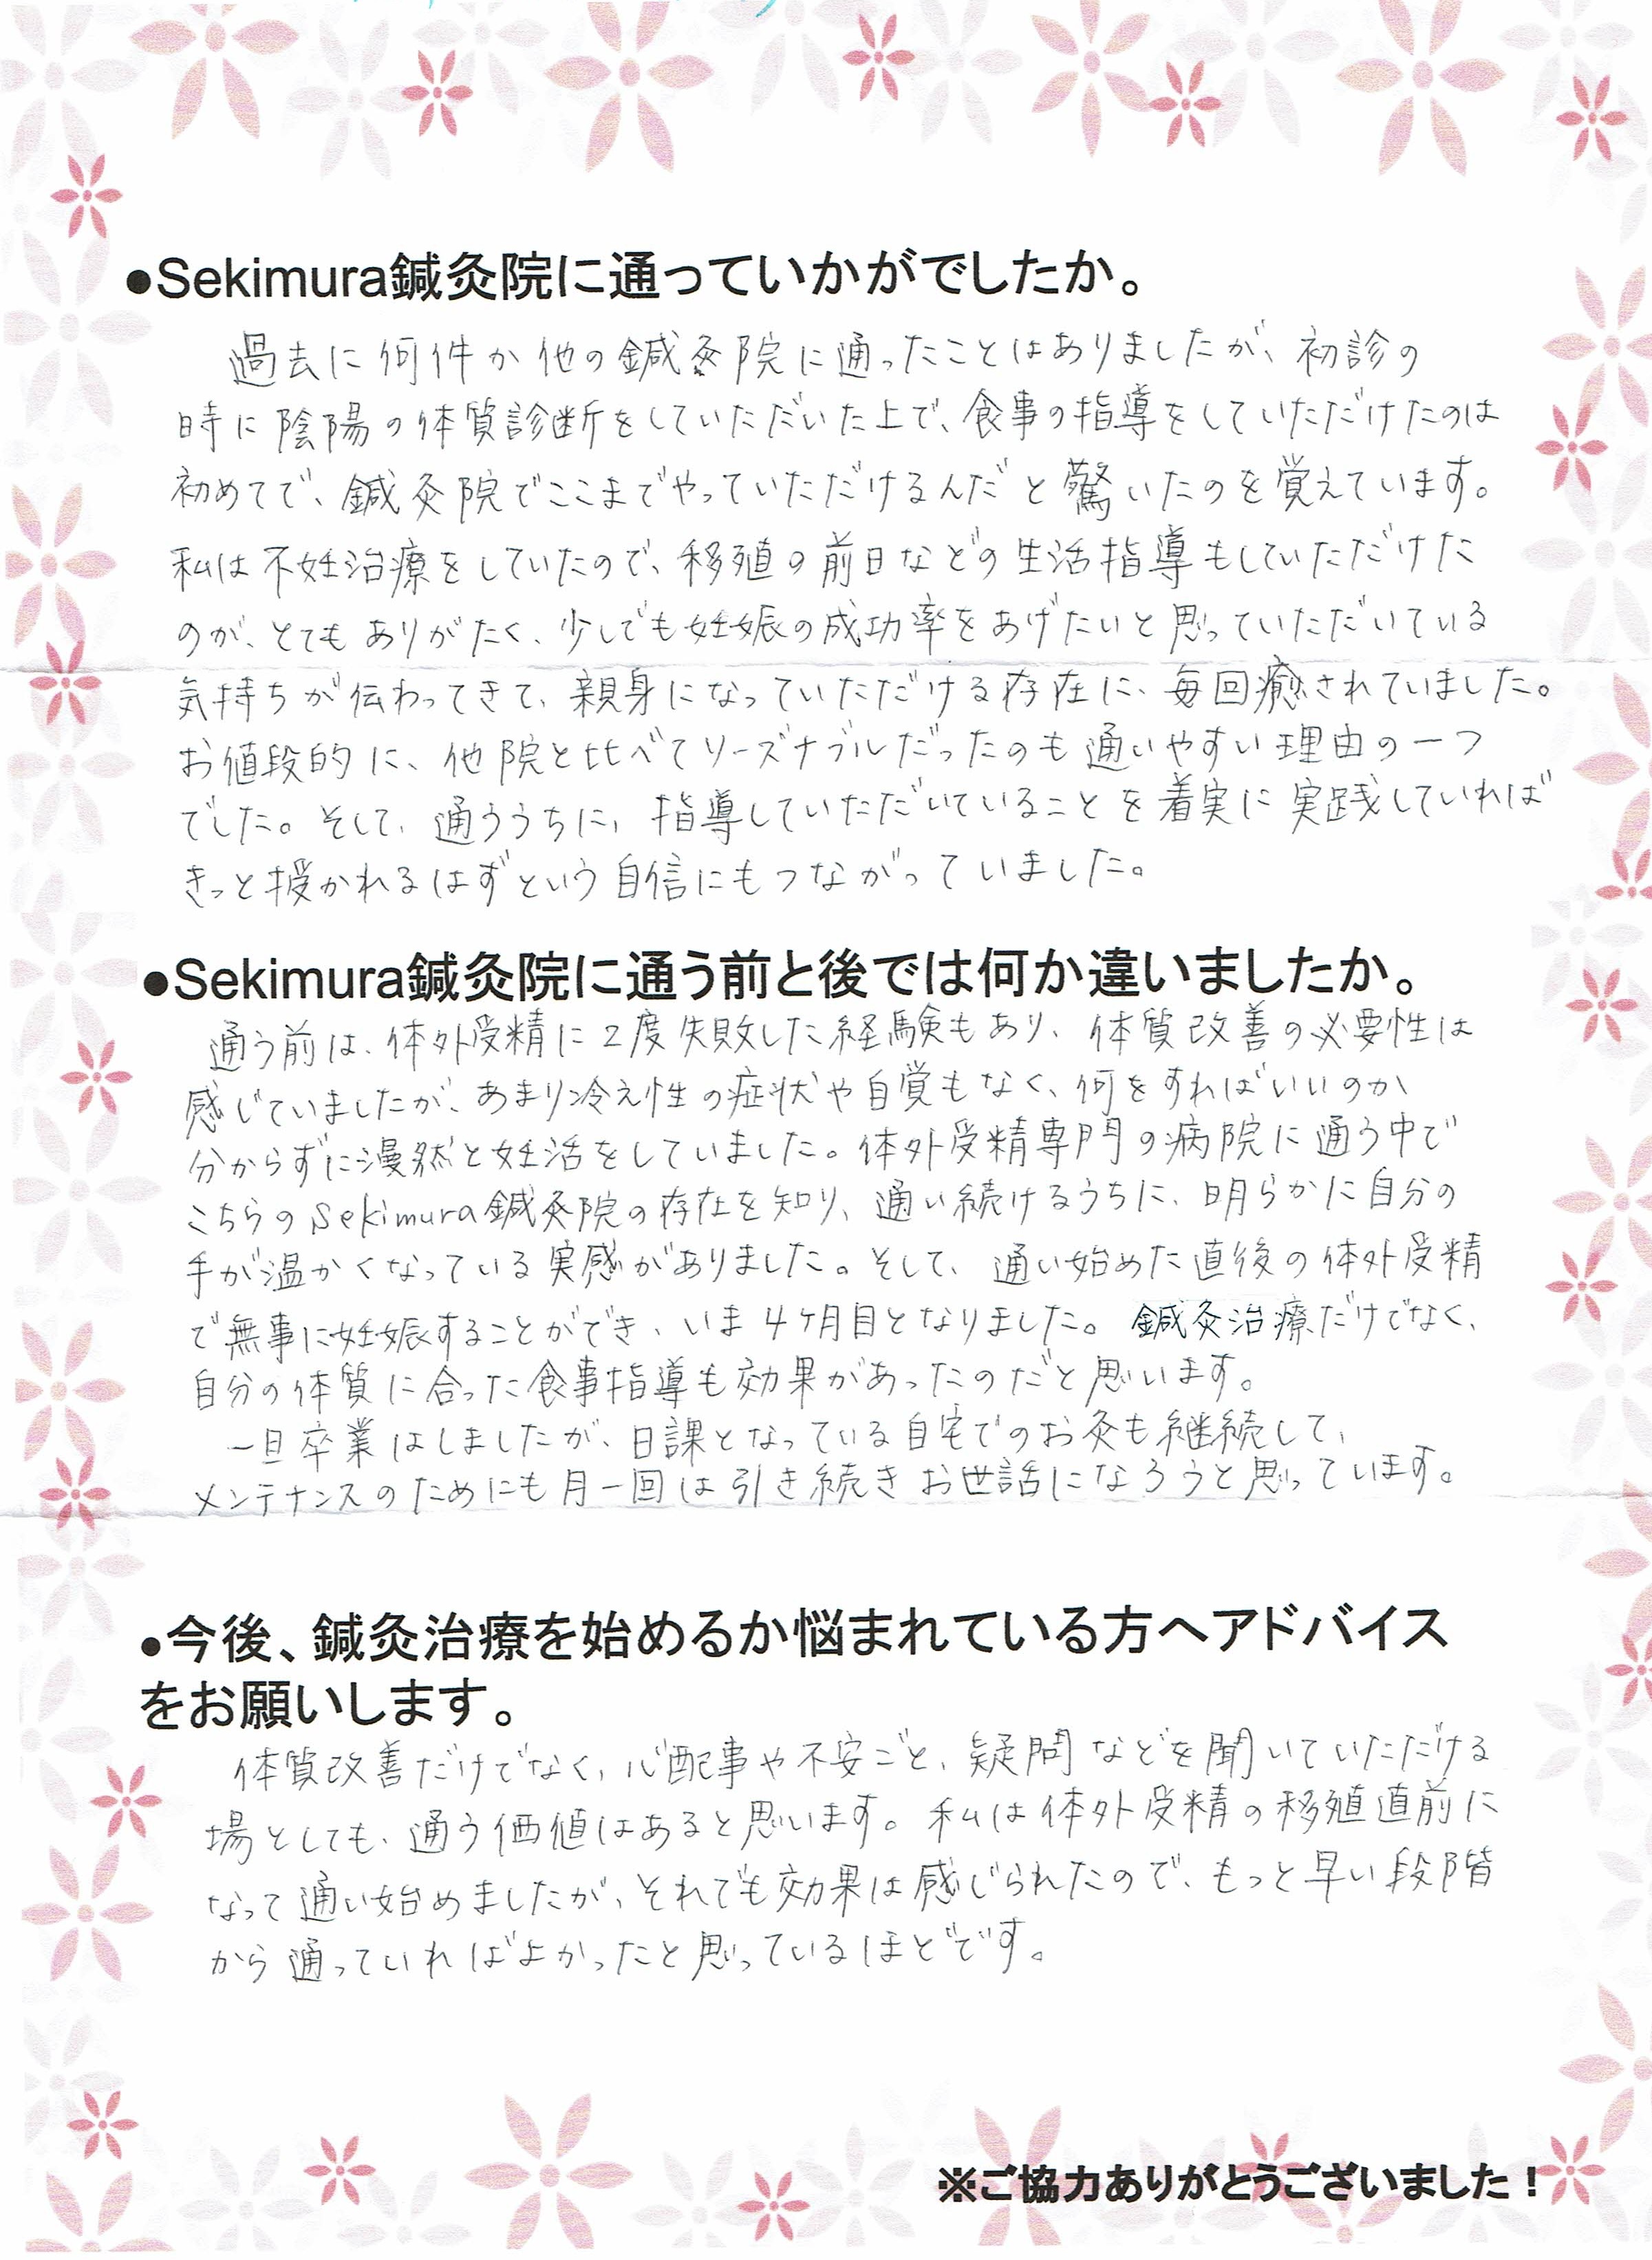 ●Sekimura鍼灸院に通っていかがでしたか。
過去に何件か他の鍼灸院に通ったことはありましたが、初診の
時に陰陽の体質診断をしていただいた上で、食事の指導をしていただけたのは
初めてで、鍼灸院でここまでやっていただけるんだと驚いたのを覚えています。
私は不妊治療をしていたので、移殖の前日などの生活指導もしていただけた
のが、とてもありがたく、少しでも妊娠の成功率をあげたいと思っていただいている
気持ちが伝わってきて、親身になっていただける存在に、毎回癒されていました。
お値段的に、他院と比べてリーズナブルだったのも通いやすい理由の一つ
でした。そして、通ううちに、指導していただいていることを着実に実践していれば
きっと授かれるはずという自信にもつながっていました。
●Sekimura鍼灸院に通う前と後では何か違いましたか。
通う前は、体外受精に2度失敗した経験もあり、体質改善の必要性は
感じていましたが、あまり冷え性の症状や自覚もなく、何をすればいいのか
分からずに漫然と妊活をしていました。体外受精専門の病院に通う中で
こちらのSekimura鍼灸院の存在を知り、通い続けるうちに、明らかに自分の
手が温かくなっている実感がありました。そして、通い始めた直後の体外受精
で無事に妊娠することができ、いま4ヶ月目となりました。鍼灸治療だけでなく、
自分の体質に合った食事指導も効果があったのだと思います。
一旦卒業はしましたが、日課となっている自宅でのお灸も継続して、
メンテナンスのためにも月一回は引き続きお世話になろうと思っています。
●今後、鍼灸治療を始めるか悩まれている方へアドバイス
をお願いします。
体質改善だけでなく、心配事や不安ごと、疑問などを聞いていただける
場としても、通う価値はあると思います。私は体外受精の移殖直前に
なって通い始めましたが、それでも効果は感じられたので、もっと早い段階
から通っていればよかったと思っているほどです。
※ご協力ありがとうございました！